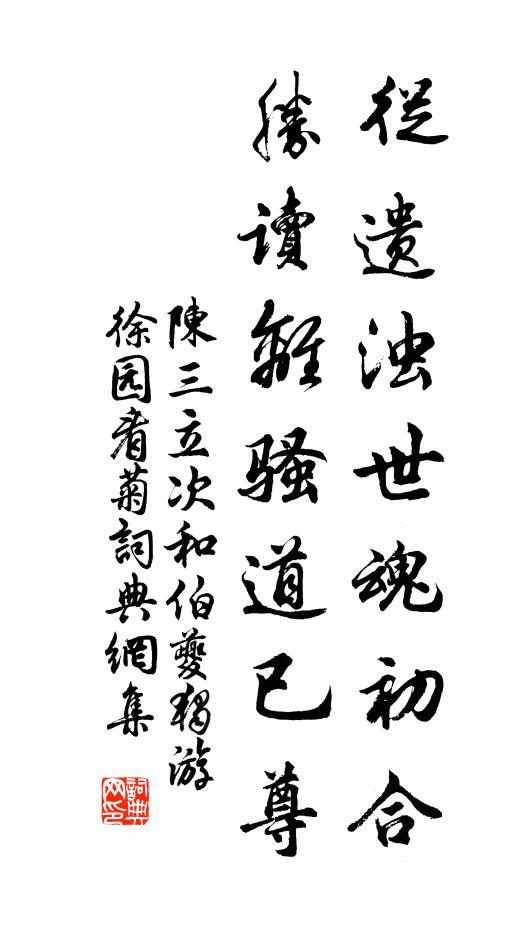 從遗浊世魂初合
勝读離骚道已尊
陳三立次和伯夔獨游
徐园看菊詞典網集
詞典网印